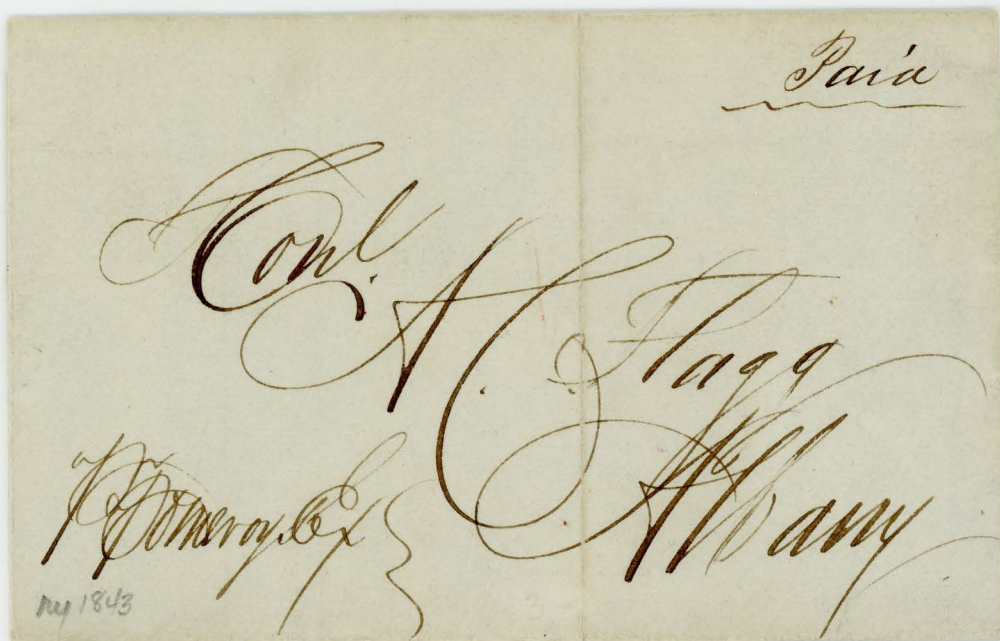 Paid
Honl.
A. C. Flagg
Albany
pr Pomeroy & Ex
ny 1843